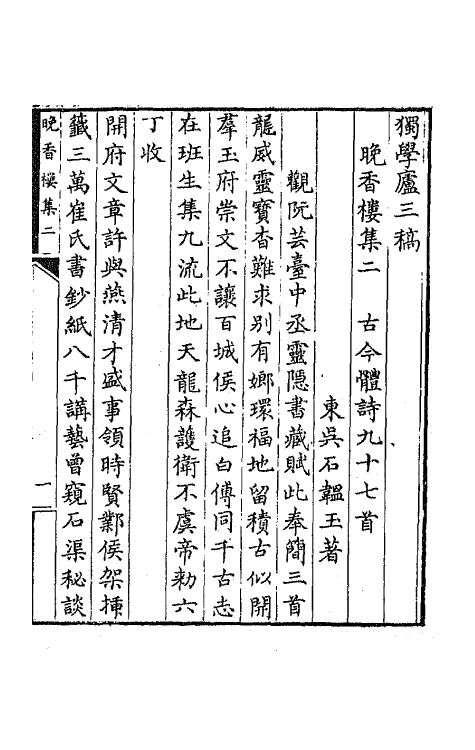 獨學廬三稿
晚香樓集二　古今體詩九十七首
東吳石韞玉著
觀阮芸臺中丞靈隱書藏賦此奉簡三首
龍威靈寶杳難求别有嫏環福地留積古似開
羣玉府崇文不讓百城侯心追白傅同千古志
在班生集九流此地天龍森護衛不虞帝勑六
丁收
開府文章許與燕清才盛事領時賢鄴侯架揷
籤三萬崔氏書鈔紙八千講藝曾窺石渠秘談
晚香樓集二
一